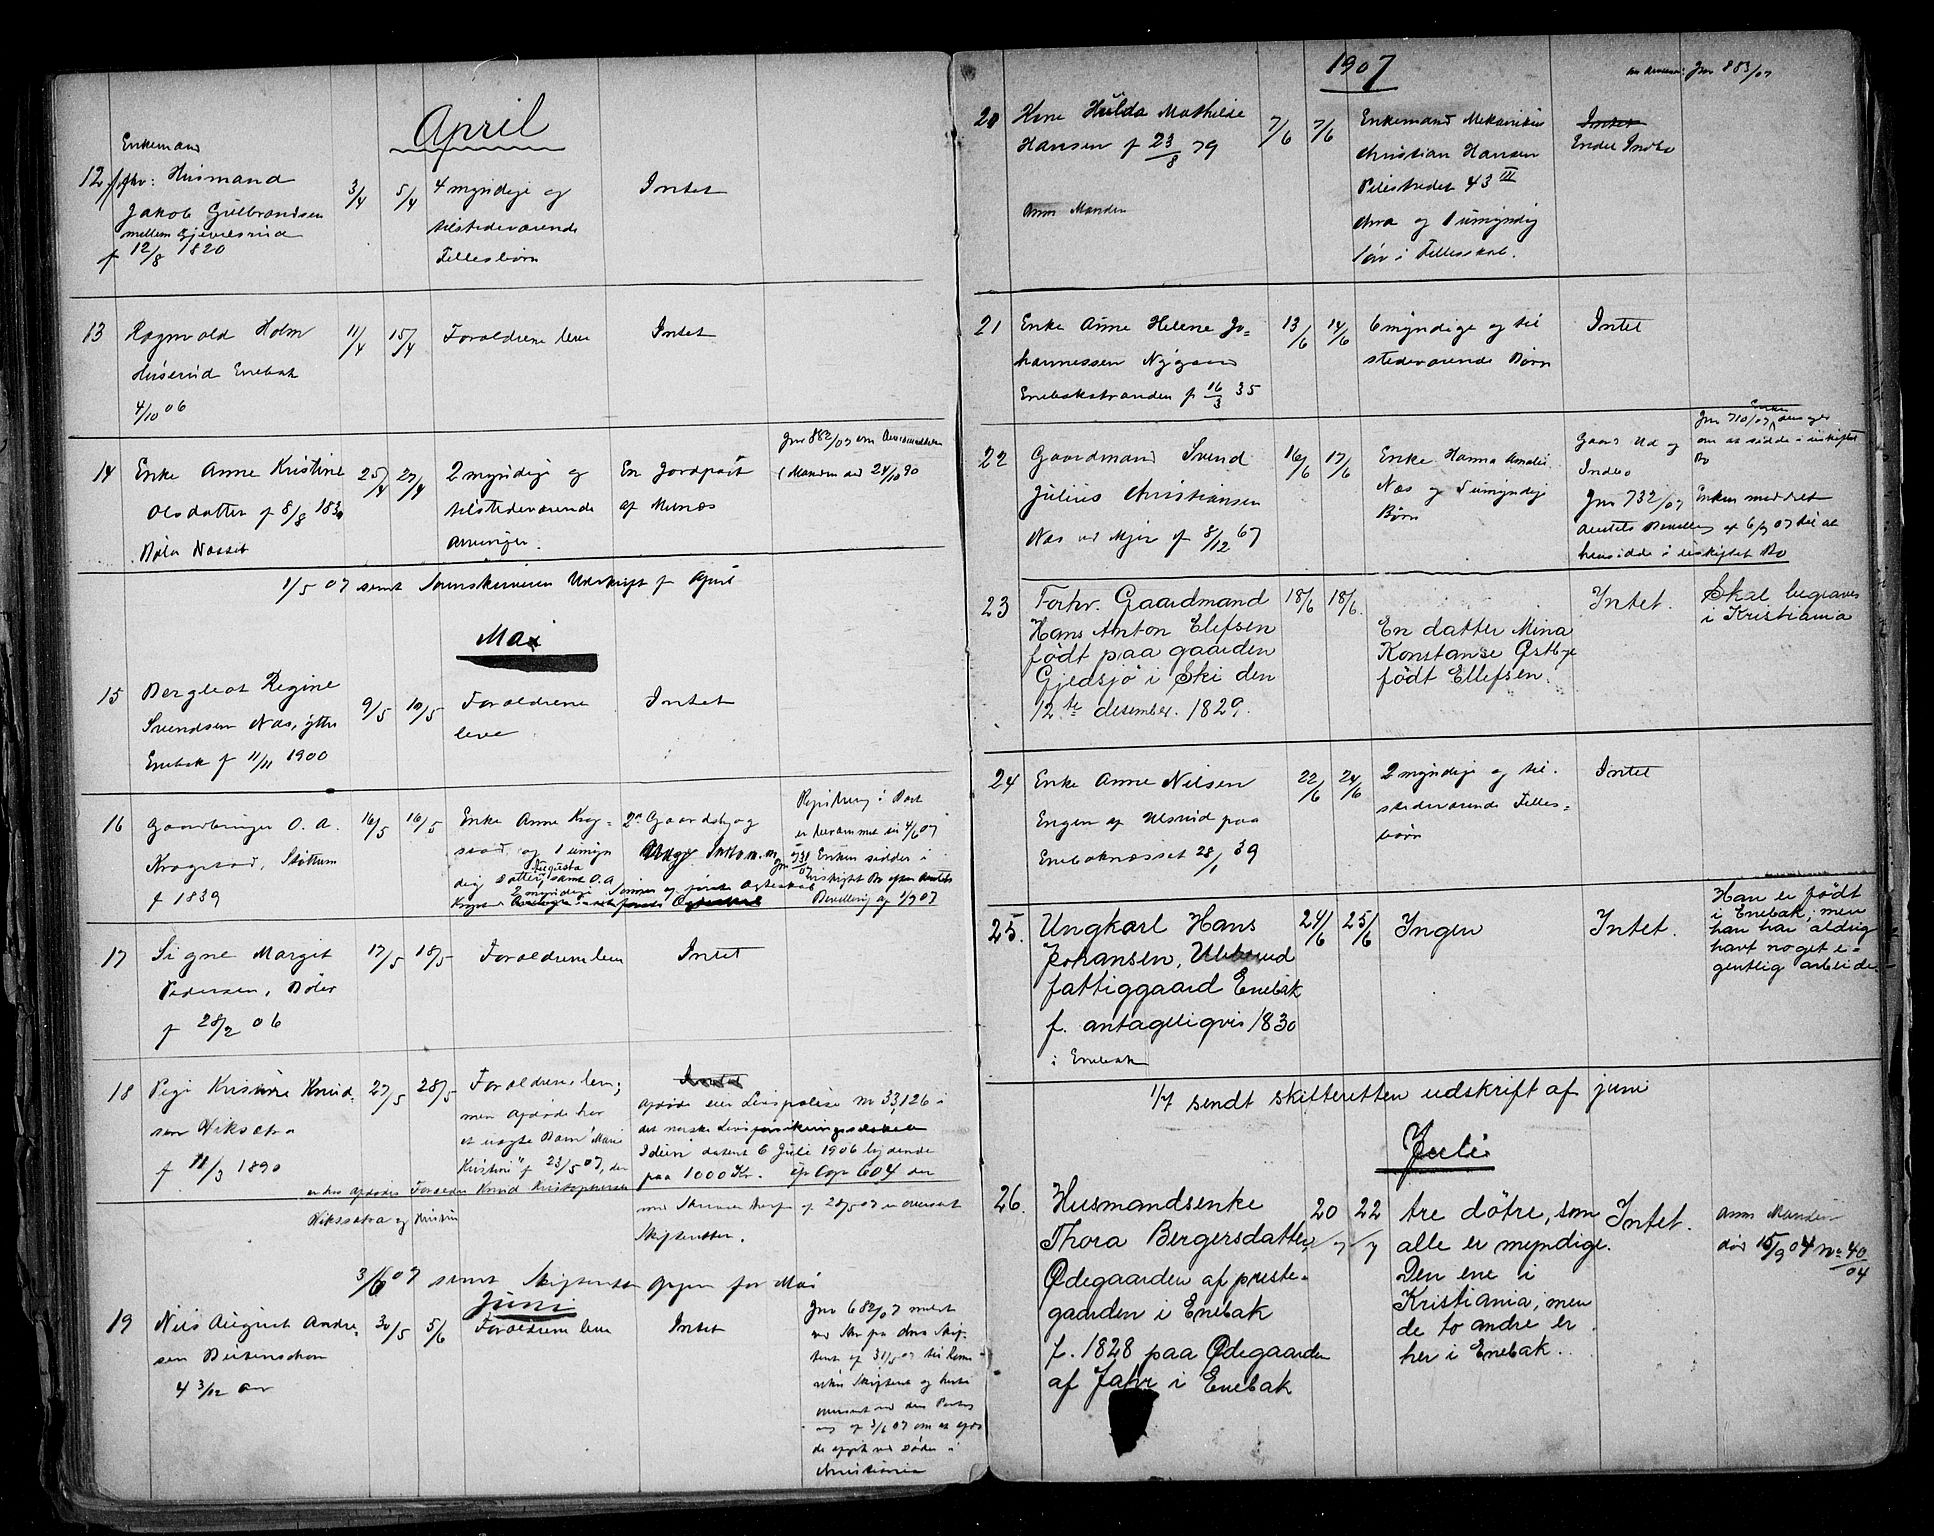 April
Enkemand
12 fhv: Husmand
Jakob Gulbrandsen
mellem Gjevelsrud
f 12/8 1820
3/4
5/4
4 myndige og
tilstedeværende
Fællesbørn
Intet
13 Ragnvald Holm
Huserud Enebak
4/10 06
11/4
15/4
Forældrene leve
Intet
14 Enke Anne Kristine
Olsdatter f 8/8 1830
Bøler Næsset
25/4
27/4
2 myndige og
tilstedeværende
arvinger.
En Jordpart
af
Jnr 882/07 om
(Manden død 24/10 90
1/5 07 sendt Sorenskriveren Udskrift f April
Mai
15 Bergleot Regine
Svendsen Næs, ytre
Enebak f 11/11 1900
9/5
10/5
Forældrene
leve
Intet
16 Gaardbruger O. A.
Kragstad, Støttum
f 1839
16/5
16/5
Enke Anne Krag-
stad, og 1 umyn
dig Datter, Augusta samt O. A
2 myndige Sønner af første Ægteskab
2 Gaardsbrug
Registrering i Boet
er berammet til 4/6 07
Jnr 731/07 Enken sidder i
uskiftet Bo efter Amtets
Bevilling af 1/7 07
17 Signe Margit
Pedersen, Bøler
f 28/2 06
17/5
18/5
Forældrene leve
Intet
18 Pegi Kristine Knud-
sen Viksætra
f 11/3 1890
27/5
28/5
Forældrene leve;
men afdøde har
et uægte Barn "Marie
Kristine" f 23/5 07, der
er hos afdødes Forældre Knud Kristophersen
Vikssætra og Kristine
Intet
Afdøde eier Livspolise nr 33,126 i
det norske Livsforsikringsselskab
Idun datert 6 Juli 1906 lydende
paa 1000 Kr. Cfr Copi 604 der
med Skrivelse herfra af 28/5 07 er oversendt
Skifteretten.
3/6 07 sendt Skifteretten Opgave for Mai
Juni
19 Nils August Andre-
sen Beitenschau
4 3/12 aar
30/5
5/6
Forældrene leve
Intet
Jnr 682/07 medt
ved Skr fra dens Skif-
teret af 31/5 07 til
Skifteret og herfra
oversendt ved
af 3/6 07 om at afdø
de afgik ved Døden i
Christiania
1907
Jnr 883/07
20 Hme Hulda Mathilde
Hansen f 23/8 79
Anm Manden
7/6
7/6
Enkemand Mekaniker
Christian Hansen
Pilestrædet 43 III
Chra og 1 umyndig
Søn i Fællesskab.
Intet
Endel Indbo
21 Enke Anne Helene Jo-
hannessen Nygaard
Enebakstranden f 16/3 35
13/6
14/6
6 myndige og til
stedeværende Børn
Intet
22 Gaardmand Svend
Julius Christiansen
Næs ved Mjær f 8/12 67
16/6
17/6
Enke Hanna Amalie
Næs og 5 umyndige
Børn
Gaard Ud og
Indbo
Jnr 732/07
Jnr 710/07 Enken
om at sidde i uskiftet
Bo
Enken meddelt
Amtets Bevilling af 6/7 07 til at
hensidde i uskiftet Bo
23 Forhv. Gaardmand
Hans Anton Elefsen
født paa gaarden
Gjedsjø i Ski den
12te desember. 1829.
18/6
18/6.
En datter Mina
Konstanse Østbye
født Ellefsen.
Intet.
Skal begraves
i Kristiania
24 Enke Anne Nilsen
Engen af Ulsrud paa
Enebaknæsset 28/1 39
22/6
24/6
2 myndige og til-
stedeværende Fælles-
børn
Intet
25. Ungkarl Hans
Johansen, Ulebærud
fattiggaard Enebak
f. antageligvis 1830
i Enebak
24/6
25/6
Ingen
Intet.
Han er født
i Enebak, men
han har aldrig
havt noget e-
gentlig arbeide
1/7 sendt skifteretten udskrift af juni
Juli
26. Husmandsenke
Thora Bergersdatter
Ødegaarden af preste-
gaarden i Enebak
f. 1828 paa Ødegaarden
af Jahr i Enebak
20/7
22/7
tre døtre, som
alle er myndige.
Den ene i
Kristiania, men
de to andre er
her i Enebak.
Intet.
Anm Manden
død 15/9 04 No 40/04